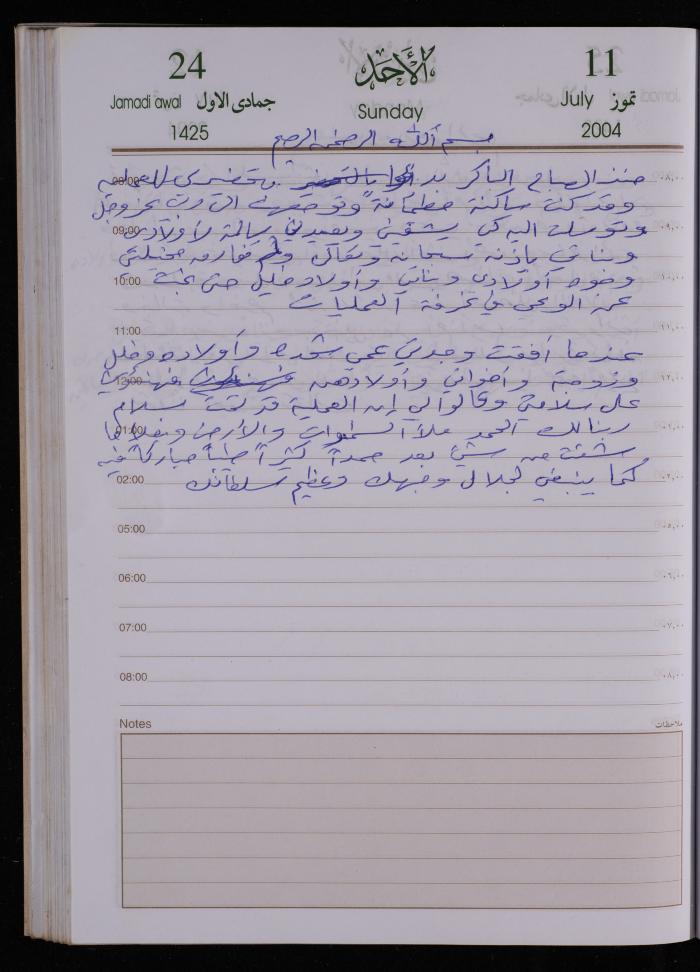 24 الأحد 11
Jamadi awal جمادى الاول Sunday July تموز
1425 2004
بسم الله الرحمن الرحيم
منذ الصباح الباكر بتحضيري للعمليه
وقد كنت ساكنة مطمئنة وتوجهت الى الله عز وجل
وتوسلت اليه كي يشفيني ويعيدني سالمة لأولادي
وبناتي بإذنه سبحانه وتعالى ولم تفارق مخيلتي
وجوه أولادي وبناتي وأولاد خليل حتى غبت
عن الوعي في غرفة العمليات
عندما أفقت وجدت عمي وأولاده وخليل
وزوجته وأخواتي وأولادهن فهنئوني
على سلامتي وقالوا لي إن العملية قد تمت بسلام
ربنا لك الحمد ملأ السموات والأرض وملأ ما
شئت من شيئ بعد حمداً كثيراً طيباً مباركاً فيه
كما ينبغي لجلال وجهك وعظيم سلطانك
08:00 ٠٨,٠٠
09:00 ٠٩,٠٠
10:00 ١٠,٠٠
11:00 ١١,٠٠
12:00 ١٢,٠٠
01:00 ٠١,٠٠
02:00 ٠٢,٠٠
05:00 ٠٥,٠٠
06:00 ٠٦,٠٠
07:00 ٠٧,٠٠
08:00 ٠٨,٠٠
Notes ملاحظات